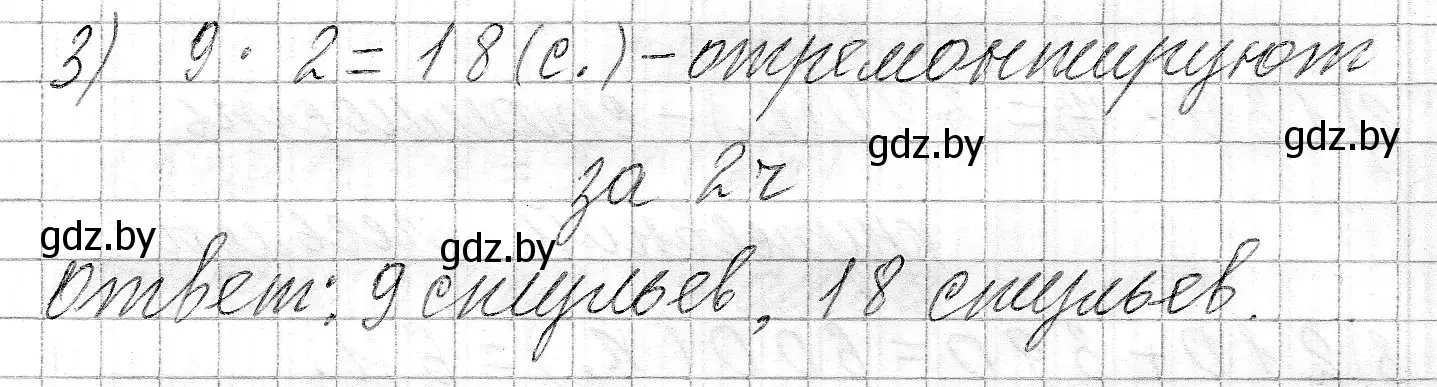 3) 9 · 2 = 18 (с.) – отремонтируют
gdz.by
gdz.by
за 2 ч
gdz.by
gdz.by
ответ: 9 стульев, 18 стульев.